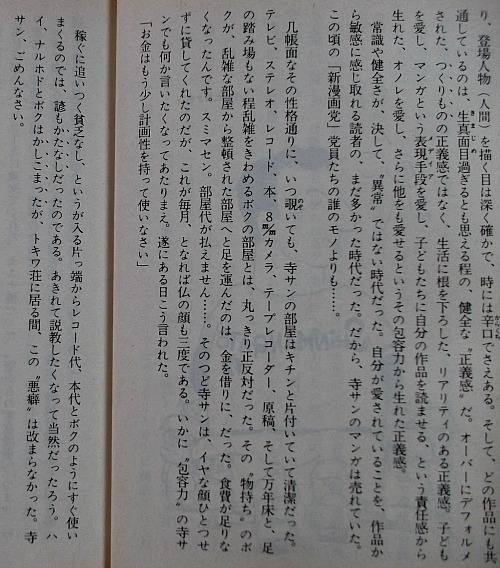 り、登場人物（人間）を描く目は深く確かで、時には辛口でさえある。そして、どの作品にも共
通しているのは、生真面目過ぎるとも思える程の、健全な〝正義感〟だ。オーバーにデフォルメ
された、つくりものの正義感ではなく、生活に根を下ろした、リアリティのある正義感。子ども
を愛し、マンガという表現手段を愛し、子どもたちに自分の作品を読ませる、という責任感から
生れた、オノレを愛し、さらに他をも愛せるというその包容力から生れた正義感。
常識や健全さが、決して、〝異常〟ではない時代だった。自分が愛されていることを、作品か
ら敏感に感じ取れる読者の、まだ多かった時代だった。だから、寺サンのマンガは売れていた。
この頃の「新漫画党」党員たちの誰のモノよりも……。
几帳面なその性格通りに、いつ覗いても、寺サンの部屋はキチンと片付いていて清潔だった。
テレビ、ステレオ、レコード、本、8㎜カメラ、テープレコーダー、原稿、そして万年床と、足
の踏み場もない程乱雑をきわめるボクの部屋とは、丸っきり正反対だった。その〝物持ち〟のボ
クが、乱雑な部屋から整頓された部屋へと足を運んだのは、金を借りに、だった。食費が足りな
くなったんです。スミマセン。部屋代が払えません……。そのつど寺サンは、イヤな顔ひとつせ
ずに貸してくれたのだが、これが毎月、となれば仏の顔も三度である。いかに〝包容力〟の寺サ
ンでも何か言いたくなってあたりまえ。遂にある日こう言われた。
「お金はもう少し計画性を持って使いなさい」
稼ぐに追いつく貧乏なし、というが入る片っ端からレコード代、本代とボクのようにすぐ使い
まくるのでは、諺もかたなしだったのである。あきれて説教したくなって当然だったろう。ハ
イ、ナルホドとボクはかしこまったが、トキワ荘に居る間、この〝悪癖〟は改まらなかった。寺
サン、ごめんなさい。